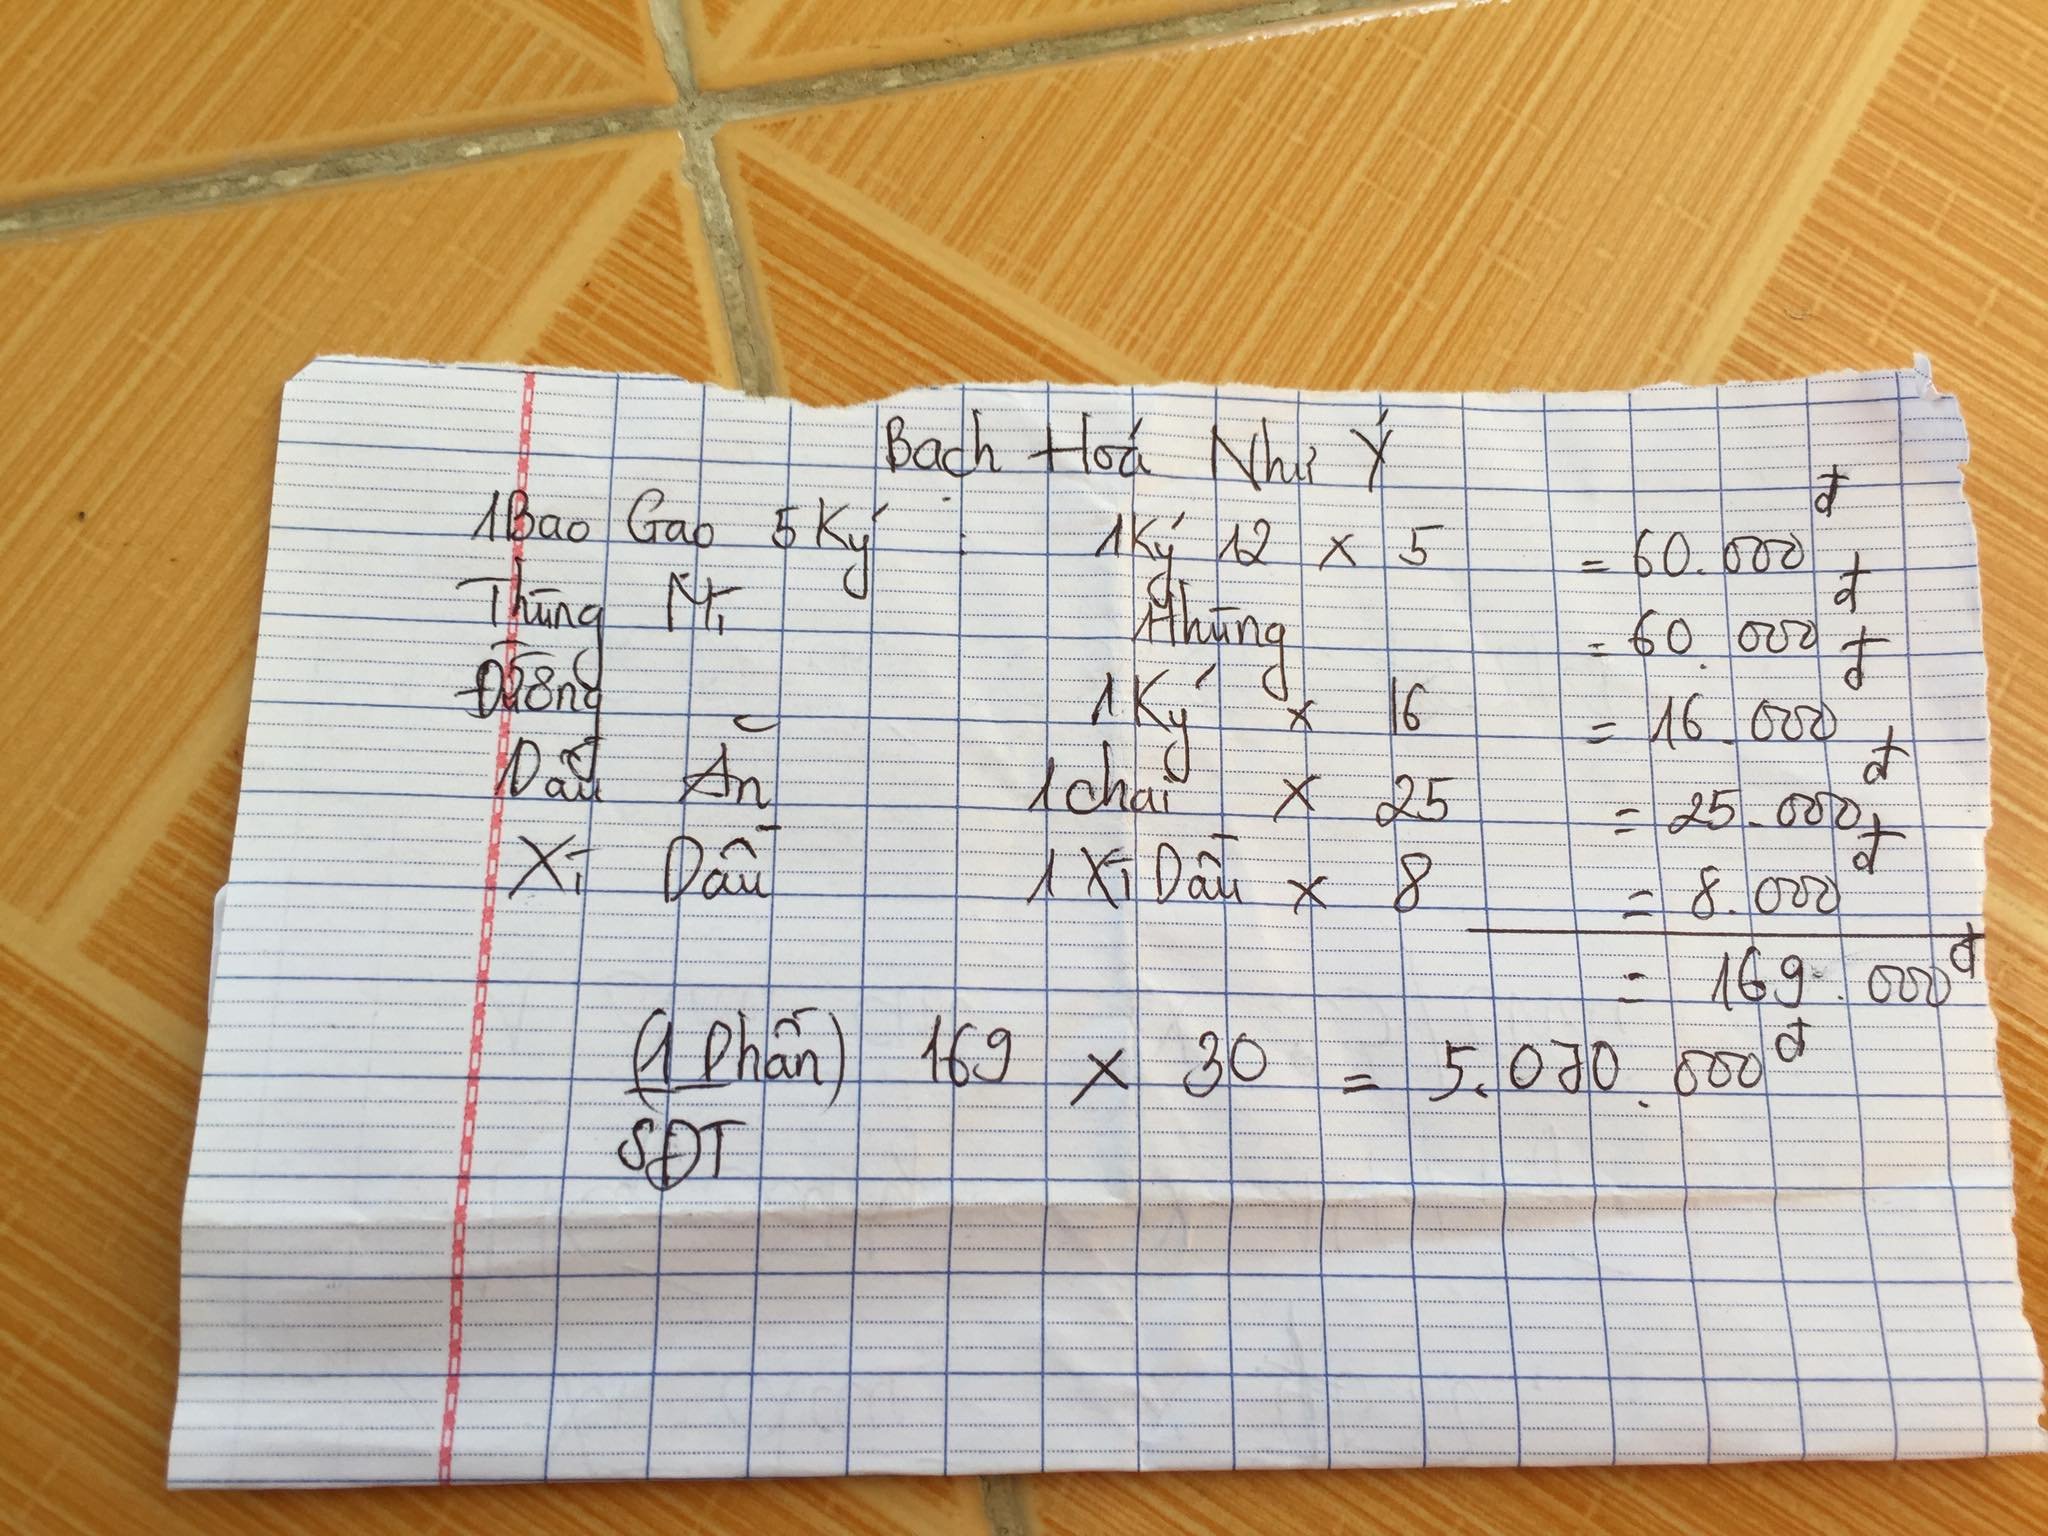 Bach Hoá Như Ý
1 Bao Gao 5 Ký : 1 Ký 12 x 5 = 60.000đ
Thùng Mì 1 thùng = 60.000đ
Đường 1 Ký x 16 = 16.000đ
Dầu Ăn 1 chai x 25 = 25.000đ
Xì Dầu 1 Xì Dầu x 8 = 8.000đ
= 169.000đ
(1 Phần) 169 x 30 = 5.070.000đ
SĐT